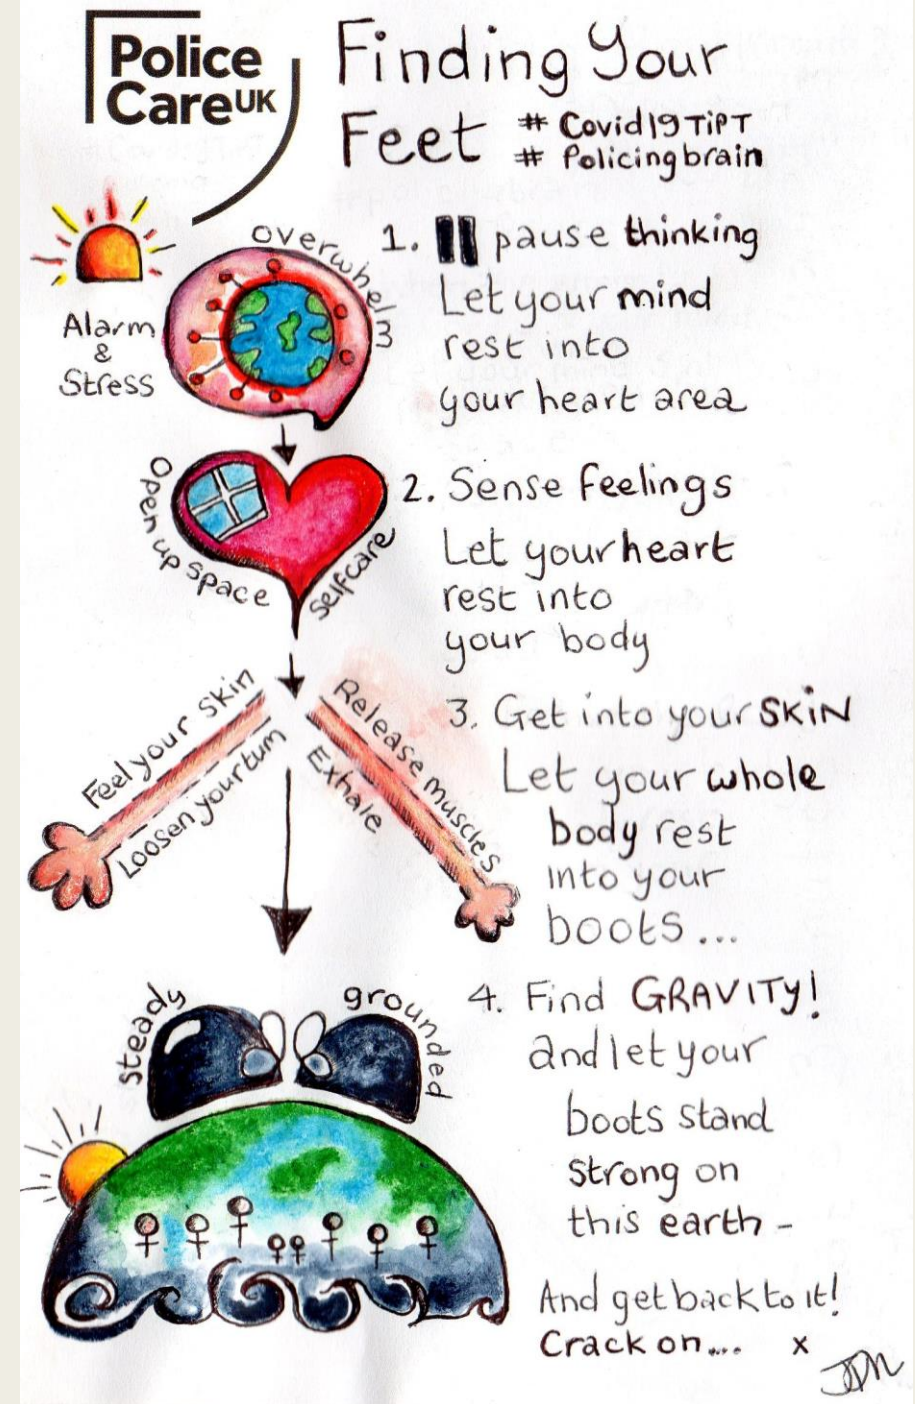 Police
Care UK
Finding Your
Feet
# Covid19TiPT
# Policingbrain
Alarm
&
Stress
overwhelm
1. pause thinking
Let your mind
rest into
your heart area
open up space
selfcare
2. Sense feelings
Let your heart
rest into
your body
Feel your skin
Loosen your tum
Release muscles
Exhale
3. Get into your SKiN
Let your whole
body rest
into your
boots...
steady
grounded
4. Find GRAVITY!
and let your
boots stand
strong on
this earth -
And get back to it!
Crack on.... x